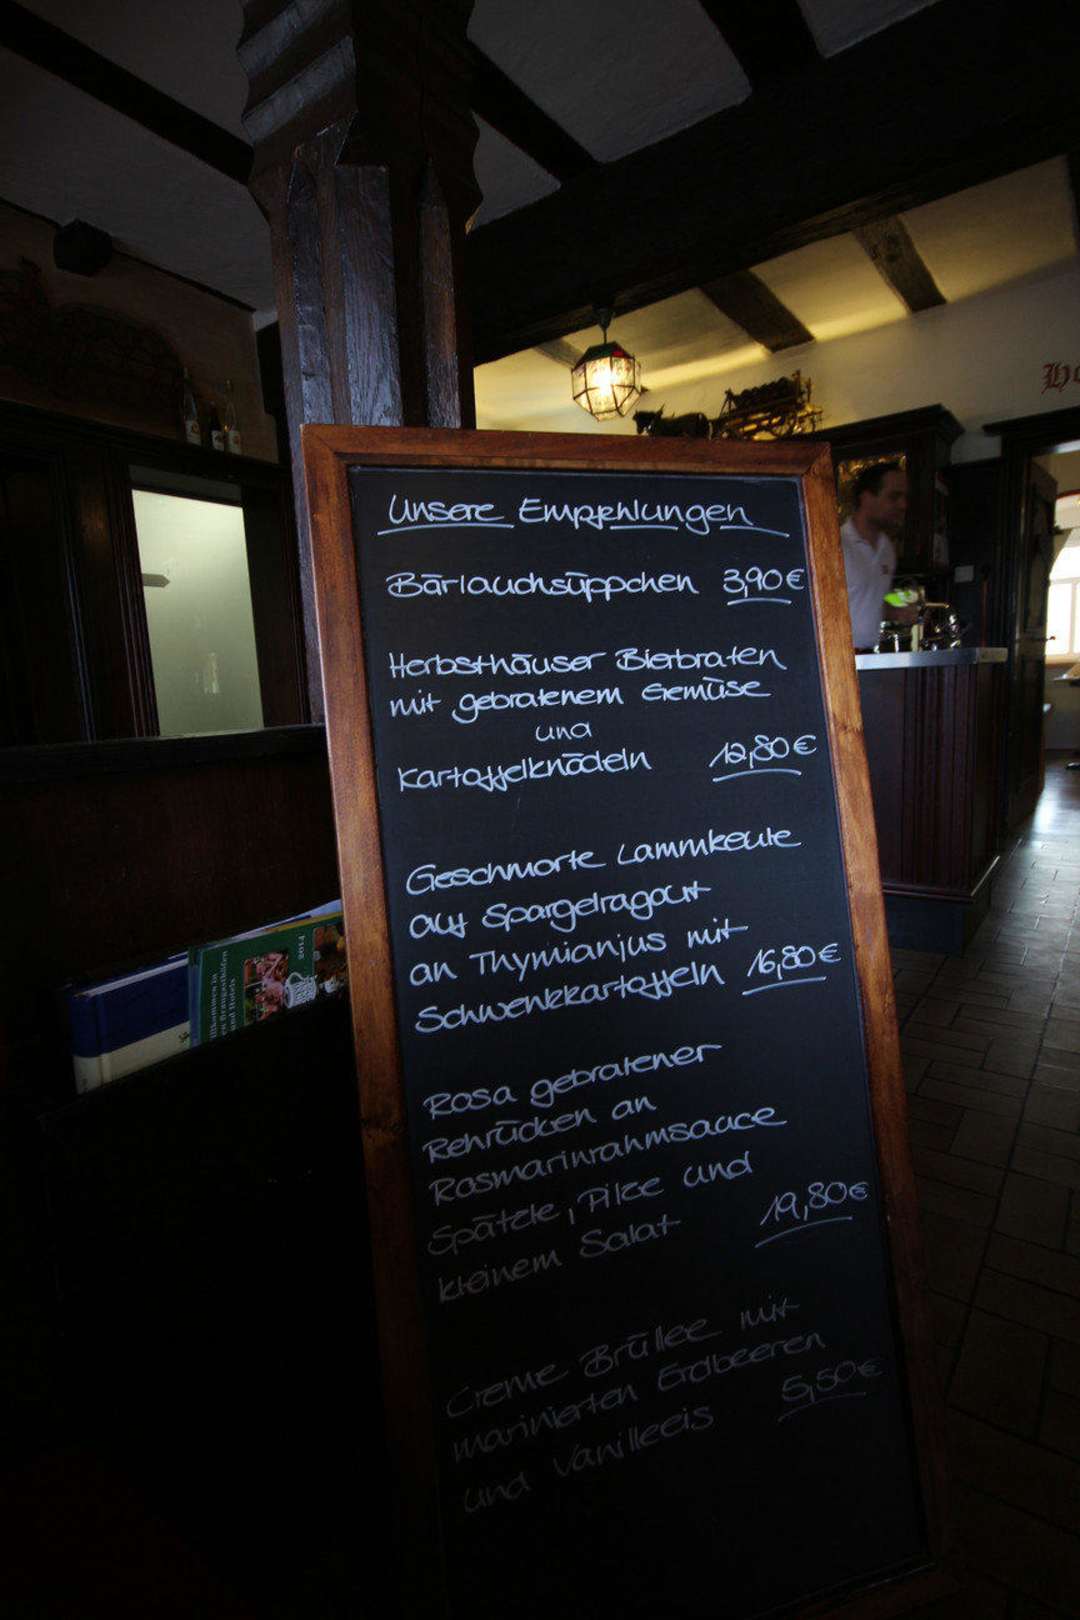 Unsere Empfehlungen
Bärlauchsüppchen 3,90 €
Herbsthäuser Bierbraten
mit gebratenem Gemüse
und
Kartoffelknödeln 12,80 €
Geschmorte Lammkeule
auf Spargelragout
an Thymianjus mit
Schwenkkartoffeln 16,80 €
Rosa gebratener
Rehrücken an
Rosmarinrahmsauce
Spätzle, Pilze und
kleinem Salat 19,80 €
Creme Brüllee mit
marinierten Erdbeeren
und Vanilleeis 5,50 €
2014